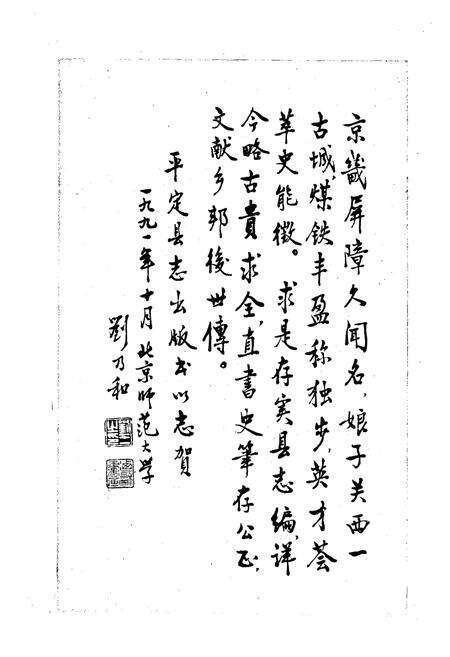 京畿屏障久闻名，娘子关西一
古城煤铁丰盈称独步，英才荟
萃史能徵。求是存实县志编，详
今略古貴求全，直書史筆存公正，
文献乡邦後世傳。
平定县志出版书以志贺
一九九一年十月北京师范大学
劉乃和